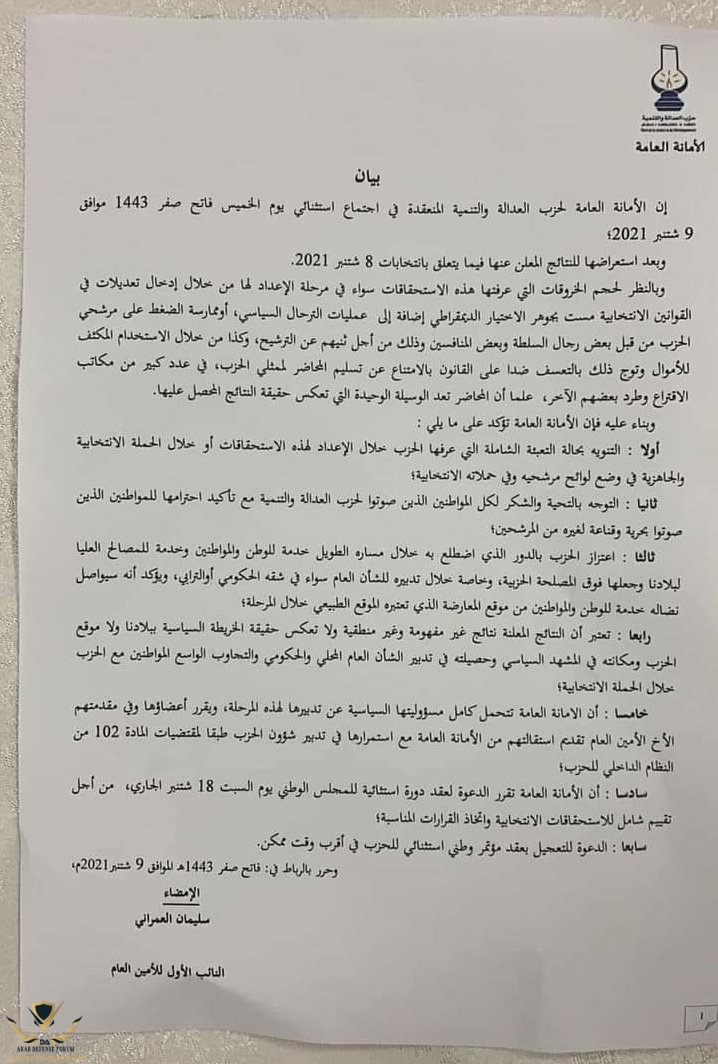 حزب العدالة والتنمية
الأمانة العامة
بيان
إن الأمانة العامة لحزب العدالة والتنمية المنعقدة في اجتماع استثنائي يوم الخميس فاتح صفر 1443 موافق
9 شتنبر 2021؛
وبعد استعراضها للنتائج المعلن عنها فيما يتعلق بانتخابات 8 شتنبر 2021.
وبالنظر لحجم الخروقات التي عرفتها هذه الاستحقاقات سواء في مرحلة الإعداد لها من خلال إدخال تعديلات في
القوانين الانتخابية مست بجوهر الاختيار الديمقراطي إضافة إلى عمليات الترحال السياسي، أوممارسة الضغط على مرشحي
الحزب من قبل بعض رجال السلطة وبعض المنافسين وذلك من أجل ثنيهم عن الترشيح، وكذا من خلال الاستخدام المكثف
للأموال وتوج ذلك بالتعسف ضدا على القانون بالامتناع عن تسليم المحاضر لممثلي الحزب، في عدد كبير من مكاتب
الاقتراع وطرد بعضهم الآخر، علما أن المحاضر تعد الوسيلة الوحيدة التي تعكس حقيقة النتائج المحصل عليها.
وبناء عليه فإن الأمانة العامة تؤكد على ما يلي :
أولا : التنويه بحالة التعبئة الشاملة التي عرفها الحزب خلال الإعداد لهذه الاستحقاقات أو خلال الحملة الانتخابية
والجاهزية في وضع لوائح مرشحيه وفي حملاته الانتخابية؛
ثانيا : التوجه بالتحية والشكر لكل المواطنين الذين صوتوا لحزب العدالة والتنمية مع تأكيد احترامها للمواطنين الذين
صوتوا بحرية وقناعة لغيره من المرشحين؛
ثالثا : اعتزاز الحزب بالدور الذي اضطلع به خلال مساره الطويل خدمة للوطن والمواطنين وخدمة للمصالح العليا
لبلادنا وجعلها فوق المصلحة الحزبية، وخاصة خلال تدبيره للشأن العام سواء في شقه الحكومي أوالترابي، ويؤكد أنه سيواصل
نضاله خدمة للوطن والمواطنين من موقع المعارضة الذي تعتبره الموقع الطبيعي خلال المرحلة؛
رابعا : تعتبر أن النتائج المعلنة نتائج غير مفهومة وغير منطقية ولا تعكس حقيقة الخريطة السياسية ببلادنا ولا موقع
الحزب ومكانته في المشهد السياسي وحصيلته في تدبير الشأن العام المحلي والحكومي والتجاوب الواسع المواطنين مع الحزب
خلال الحملة الانتخابية؛
خامسا : أن الامانة العامة تتحمل كامل مسؤوليتها السياسية عن تدبيرها لهذه المرحلة، ويقرر أعضاؤها وفي مقدمتهم
الأخ الأمين العام تقديم استقالتهم من الأمانة العامة مع استمرارها في تدبير شؤون الحزب طبقا لمقتضيات المادة 102 من
النظام الداخلي للحزب؛
سادسا : أن الأمانة العامة تقرر الدعوة لعقد دورة استثنائية للمجلس الوطني يوم السبت 18 شتنبر الجاري، من أجل
تقييم شامل للاستحقاقات الانتخابية واتخاذ القرارات المناسبة؛
سابعا : الدعوة للتعجيل بعقد مؤتمر وطني استثنائي للحزب في أقرب وقت ممكن.
وحرر بالرباط في: فاتح صفر 1443هـ الموافق 9 شتنبر 2021م،
الإمضاء
سليمان العمراني
النائب الأول للأمين العام
1
ARAB DEFENSE FORUM